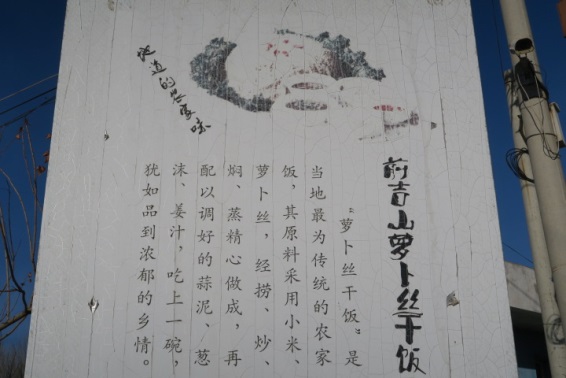 前吉山萝卜丝干饭
“萝卜丝干饭”是
当地最为传统的农家
饭，其原料采用小米、
萝卜丝，经捞、炒、
焖、蒸精心做成，再
配以调好的蒜泥、葱
沫、姜汁，吃上一碗，
犹如品到浓郁的乡情。
边的味